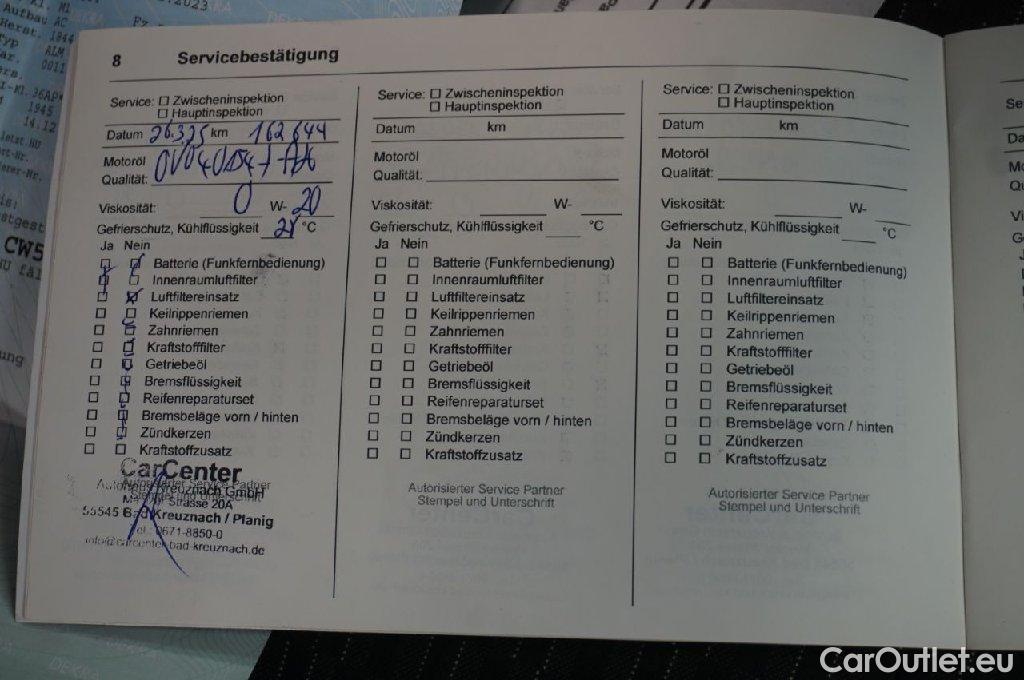 8 Servicebestätigung
Service: ☐ Zwischeninspektion
☐ Hauptinspektion
Datum 26.3.25 km 162 644
Motoröl
Qualität:
Viskosität: 0 W- 20
Gefrierschutz, Kühlflüssigkeit °C
Ja Nein
Batterie (Funkfernbedienung)
Innenraumluftfilter
Luftfiltereinsatz
Keilrippenriemen
Zahnriemen
Kraftstofffilter
Getriebeöl
Bremsflüssigkeit
Reifenreparaturset
Bremsbeläge vorn / hinten
Zündkerzen
Kraftstoffzusatz
CarCenter
Autorisierter Service Partner
Kreuznach GmbH
Stempel und Unterschrift
Strasse 20A
55545 Bad Kreuznach / Planig
Tel.: 0671-8850-0
info@carcenter-bad-kreuznach.de
Service: ☐ Zwischeninspektion
☐ Hauptinspektion
Datum km
Motoröl
Qualität:
Viskosität: W-
Gefrierschutz, Kühlflüssigkeit °C
Ja Nein
☐ ☐ Batterie (Funkfernbedienung)
☐ ☐ Innenraumluftfilter
☐ ☐ Luftfiltereinsatz
☐ ☐ Keilrippenriemen
☐ ☐ Zahnriemen
☐ ☐ Kraftstofffilter
☐ ☐ Getriebeöl
☐ ☐ Bremsflüssigkeit
☐ ☐ Reifenreparaturset
☐ ☐ Bremsbeläge vorn / hinten
☐ ☐ Zündkerzen
☐ ☐ Kraftstoffzusatz
Autorisierter Service Partner
Stempel und Unterschrift
Service: ☐ Zwischeninspektion
☐ Hauptinspektion
Datum km
Motoröl
Qualität:
Viskosität: W-
Gefrierschutz, Kühlflüssigkeit °C
Ja Nein
☐ ☐ Batterie (Funkfernbedienung)
☐ ☐ Innenraumluftfilter
☐ ☐ Luftfiltereinsatz
☐ ☐ Keilrippenriemen
☐ ☐ Zahnriemen
☐ ☐ Kraftstofffilter
☐ ☐ Getriebeöl
☐ ☐ Bremsflüssigkeit
☐ ☐ Reifenreparaturset
☐ ☐ Bremsbeläge vorn / hinten
☐ ☐ Zündkerzen
☐ ☐ Kraftstoffzusatz
Autorisierter Service Partner
Stempel und Unterschrift
CarOutlet.eu